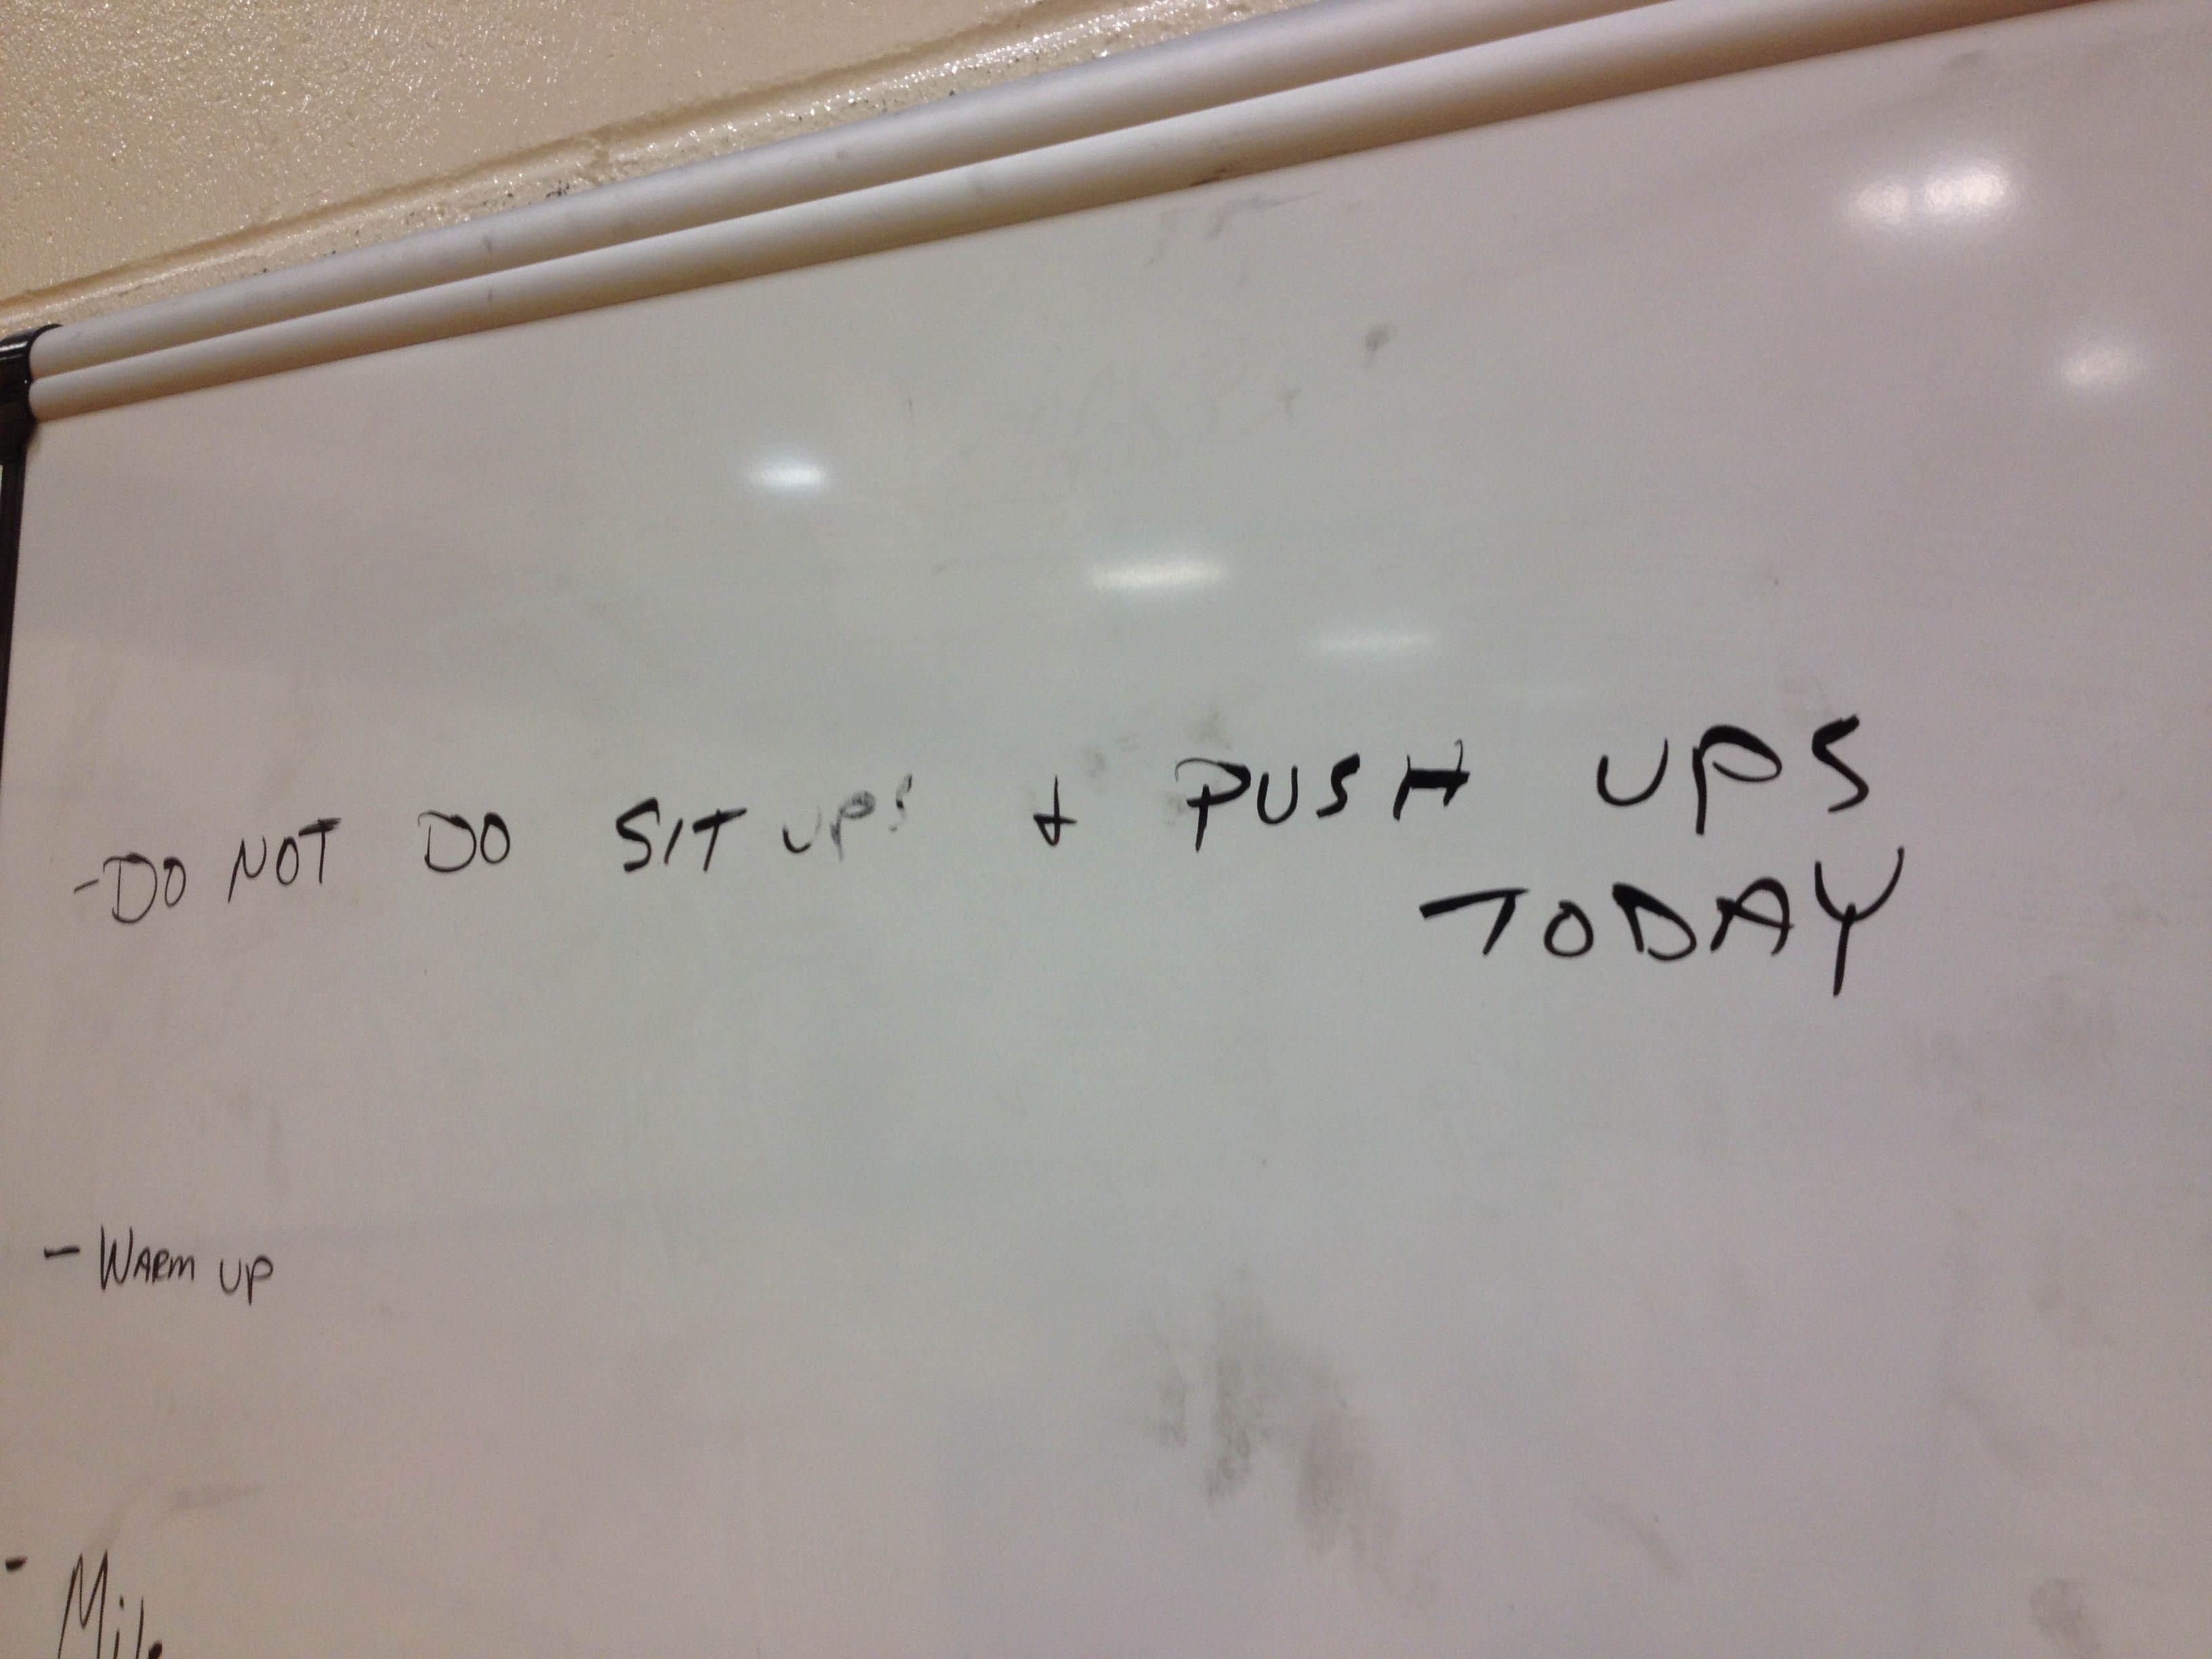 - DO NOT DO SIT UPS + PUSH UPS
TODAY
- WARM UP
- Mile